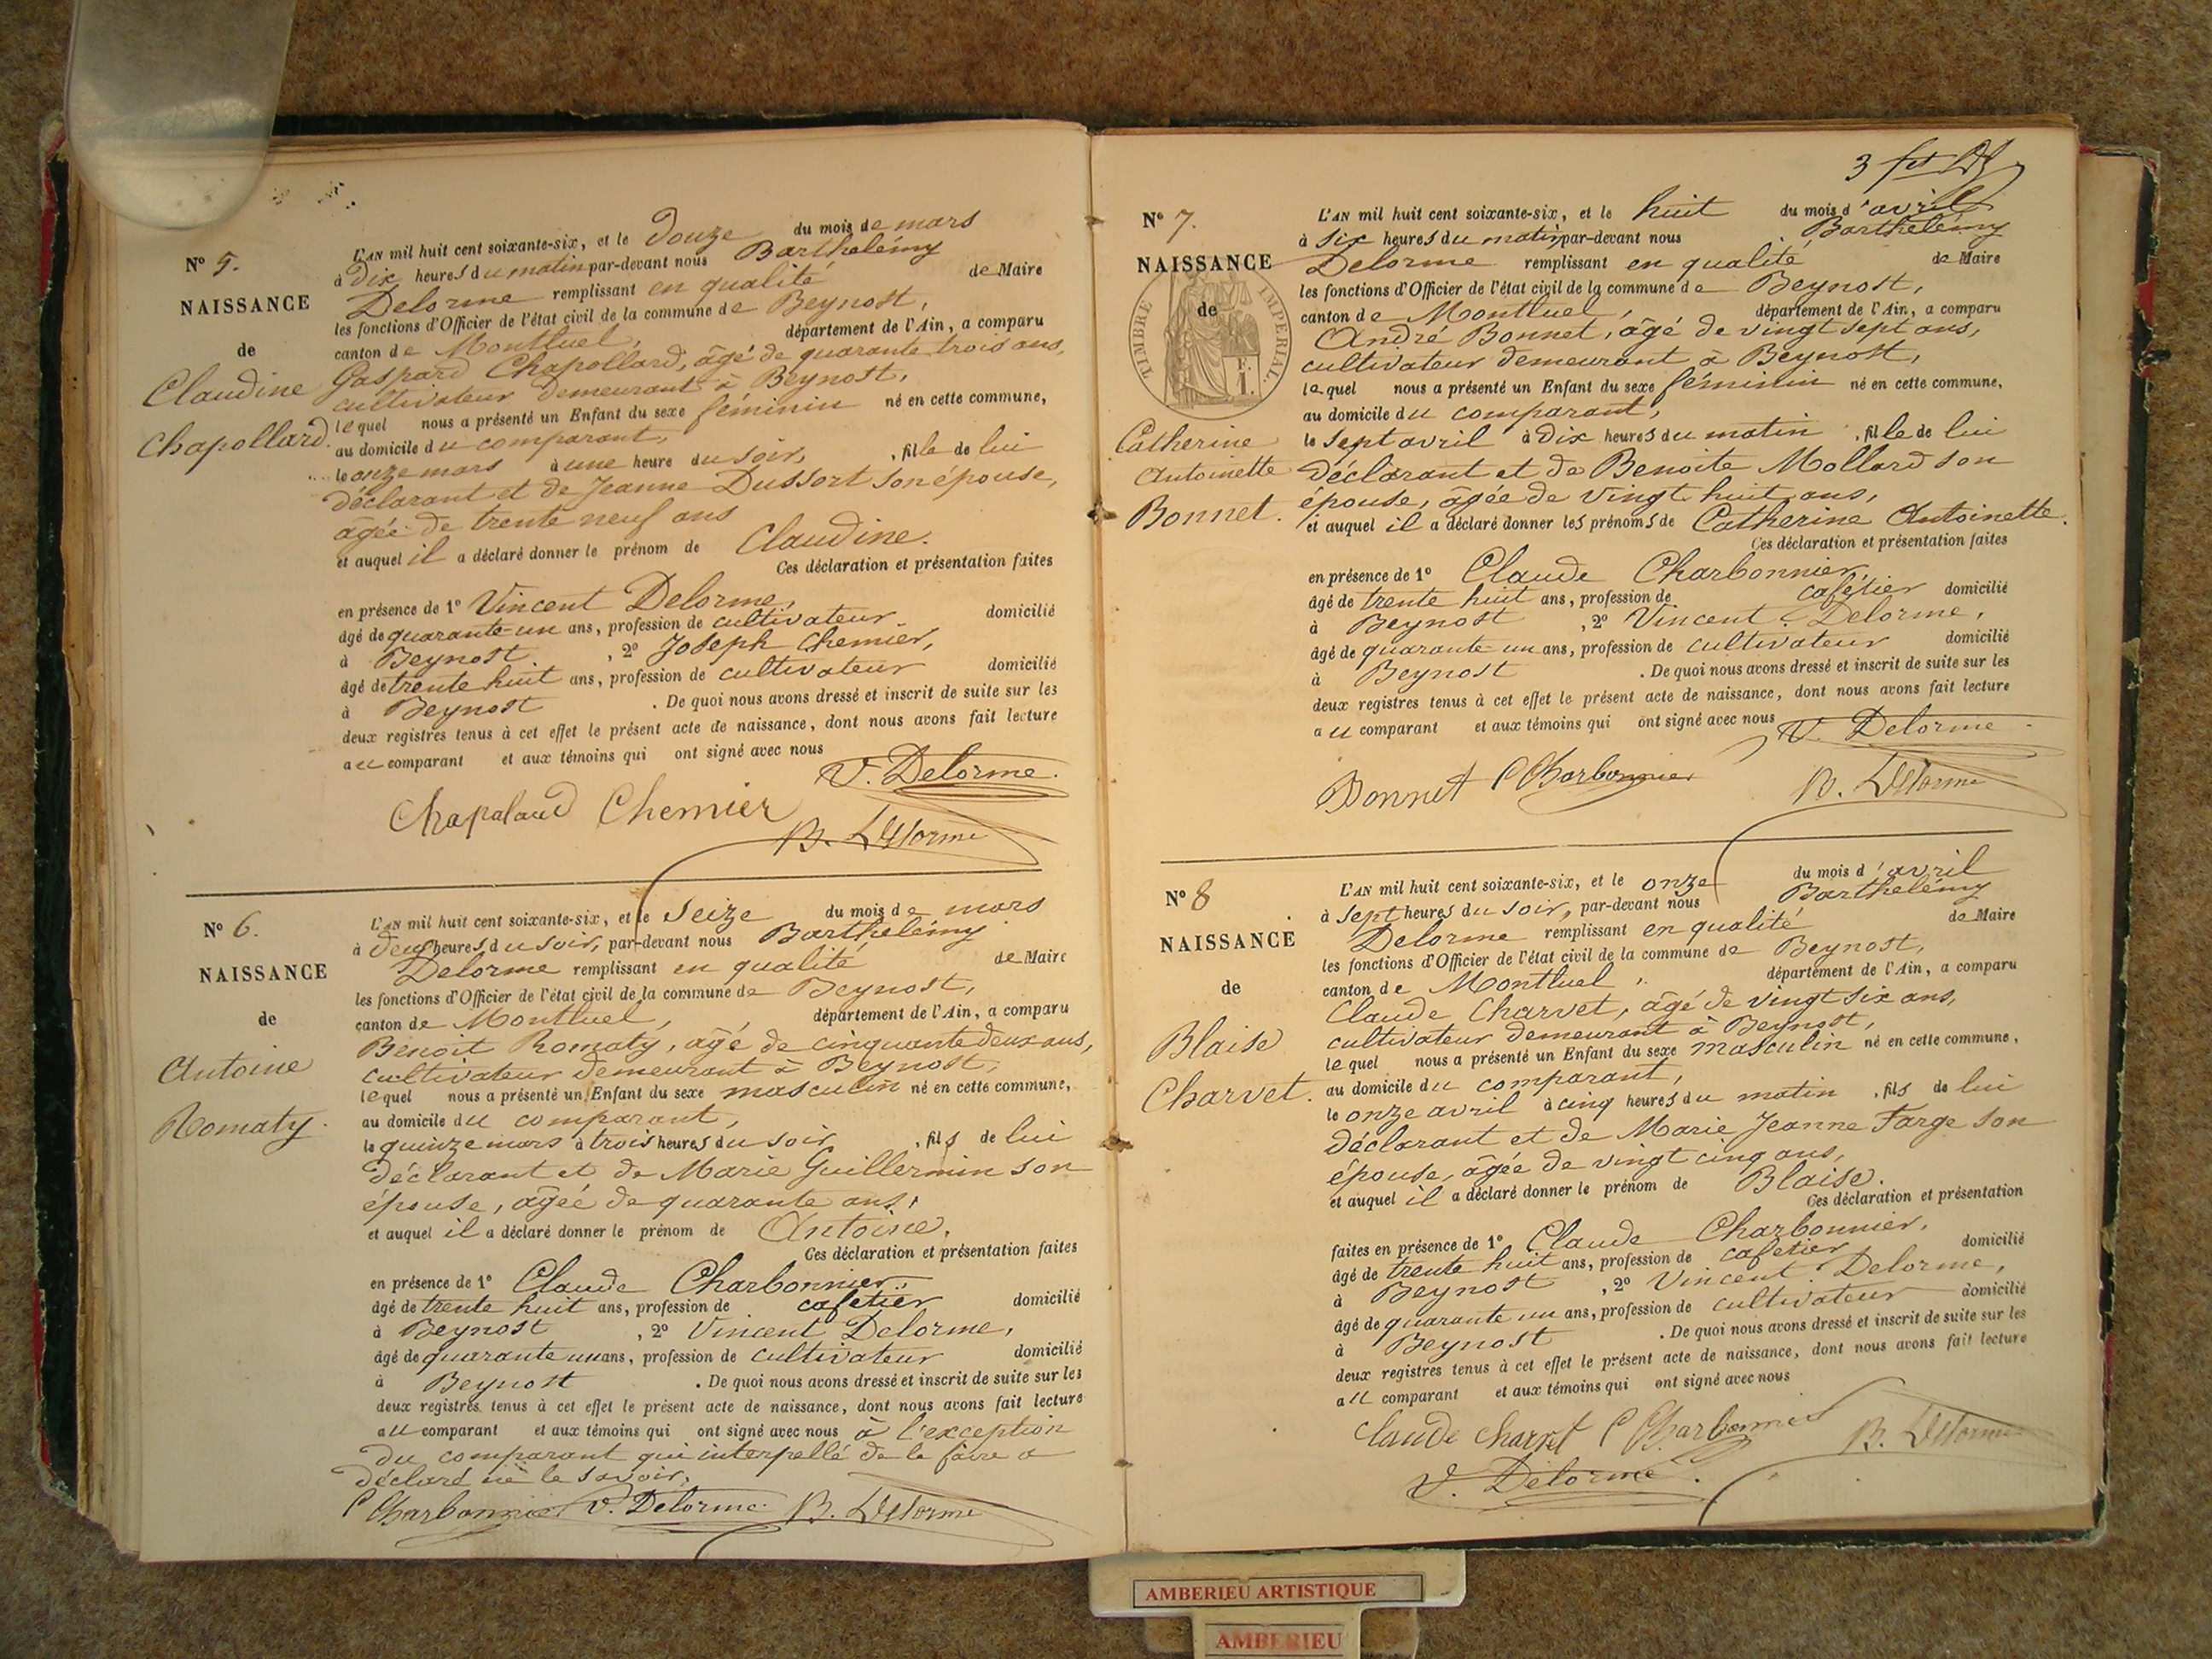 Nº 5.
NAISSANCE
de
Claudine
Chapollard.
L'AN mil huit cent soixante-six, et le douze du mois de mars
à dix heures du matin par-devant nous Barthelémy
Delorme remplissant en qualité de Maire
les fonctions d'Officier de l'état civil de la commune de Beynost,
canton de Montluel, département de l'Ain, a comparu
Gaspard Chapollard, âgé de quarante trois ans,
cultivateur demeurant à Beynost,
lequel nous a présenté un Enfant du sexe féminin né en cette commune,
au domicile du comparant,
le onze mars à une heure du soir, , fille de lui
déclarant et de Jeanne Dussort son épouse,
âgée de trente neuf ans
et auquel il a déclaré donner le prénom de Claudine.
Ces déclaration et présentation faites
en présence de 1º Vincent Delorme,
âgé de quarante-un ans, profession de cultivateur domicilié
à Beynost , 2º Joseph Chemier,
âgé de trente huit ans, profession de cultivateur domicilié
à Beynost . De quoi nous avons dressé et inscrit de suite sur les
deux registres tenus à cet effet le présent acte de naissance, dont nous avons fait lecture
au comparant et aux témoins qui ont signé avec nous
V. Delorme.
Chapaland Chemier
B. Delorme
Nº 6.
NAISSANCE
de
Antoine
Romaty.
L'AN mil huit cent soixante-six, et le seize du mois de mars
à deux heures du soir, par-devant nous Barthelémy
Delorme remplissant en qualité de Maire
les fonctions d'Officier de l'état civil de la commune de Beynost,
canton de Montluel, département de l'Ain, a comparu
Benoit Romaty, âgé de cinquante deux ans,
cultivateur demeurant à Beynost,
lequel nous a présenté un Enfant du sexe masculin né en cette commune,
au domicile du comparant,
le quinze mars à trois heures du soir , fils de lui
déclarant et de Marie Guillermin son
épouse, âgée de quarante ans,
et auquel il a déclaré donner le prénom de Antoine.
Ces déclaration et présentation faites
en présence de 1º Claude Charbonnier,
âgé de trente huit ans, profession de cafetier domicilié
à Beynost , 2º Vincent Delorme,
âgé de quarante un ans, profession de cultivateur domicilié
à Beynost . De quoi nous avons dressé et inscrit de suite sur les
deux registres tenus à cet effet le présent acte de naissance, dont nous avons fait lecture
au comparant et aux témoins qui ont signé avec nous à l'exception
du comparant qui interpellé de le faire a
déclaré ne le savoir.
C Charbonnier V. Delorme. B. Delorme
3
Nº 7.
NAISSANCE
de
TIMBRE IMPERIAL.
Catherine
Antoinette
Bonnet.
L'AN mil huit cent soixante-six, et le huit du mois d'avril
à six heures du matin par-devant nous Barthelémy
Delorme remplissant en qualité de Maire
les fonctions d'Officier de l'état civil de la commune de Beynost,
canton de Montluel, département de l'Ain, a comparu
André Bonnet, âgé de vingt sept ans,
cultivateur demeurant à Beynost,
lequel nous a présenté un Enfant du sexe féminin né en cette commune,
au domicile du comparant,
le sept avril à dix heures du matin , fille de lui
déclarant et de Benoite Mollard son
épouse, âgée de vingt huit ans,
et auquel il a déclaré donner les prénoms de Catherine Antoinette.
Ces déclaration et présentation faites
en présence de 1º Claude Charbonnier,
âgé de trente huit ans, profession de cafétier domicilié
à Beynost , 2º Vincent Delorme,
âgé de quarante un ans, profession de cultivateur domicilié
à Beynost . De quoi nous avons dressé et inscrit de suite sur les
deux registres tenus à cet effet le présent acte de naissance, dont nous avons fait lecture
au comparant et aux témoins qui ont signé avec nous V. Delorme
Bonnet C Charbonnier B. Delorme
Nº 8
NAISSANCE
de
Blaise
Charvet.
L'AN mil huit cent soixante-six, et le onze du mois d'avril
à sept heures du soir, par-devant nous Barthelémy
Delorme remplissant en qualité de Maire
les fonctions d'Officier de l'état civil de la commune de Beynost,
canton de Montluel, département de l'Ain, a comparu
Claude Charvet, âgé de vingt six ans,
cultivateur demeurant à Beynost,
lequel nous a présenté un Enfant du sexe masculin né en cette commune,
au domicile du comparant,
le onze avril à cinq heures du matin , fils de lui
déclarant et de Marie Jeanne Farge son
épouse, âgée de vingt cinq ans,
et auquel il a déclaré donner le prénom de Blaise.
Ces déclaration et présentation
faites en présence de 1º Claude Charbonnier,
âgé de trente huit ans, profession de cafetier domicilié
à Beynost , 2º Vincent Delorme,
âgé de quarante un ans, profession de cultivateur domicilié
à Beynost . De quoi nous avons dressé et inscrit de suite sur les
deux registres tenus à cet effet le présent acte de naissance, dont nous avons fait lecture
au comparant et aux témoins qui ont signé avec nous
Claude Charvet C Charbonnier B. Delorme
V. Delorme.
AMBERIEU ARTISTIQUE
AMBERIEU